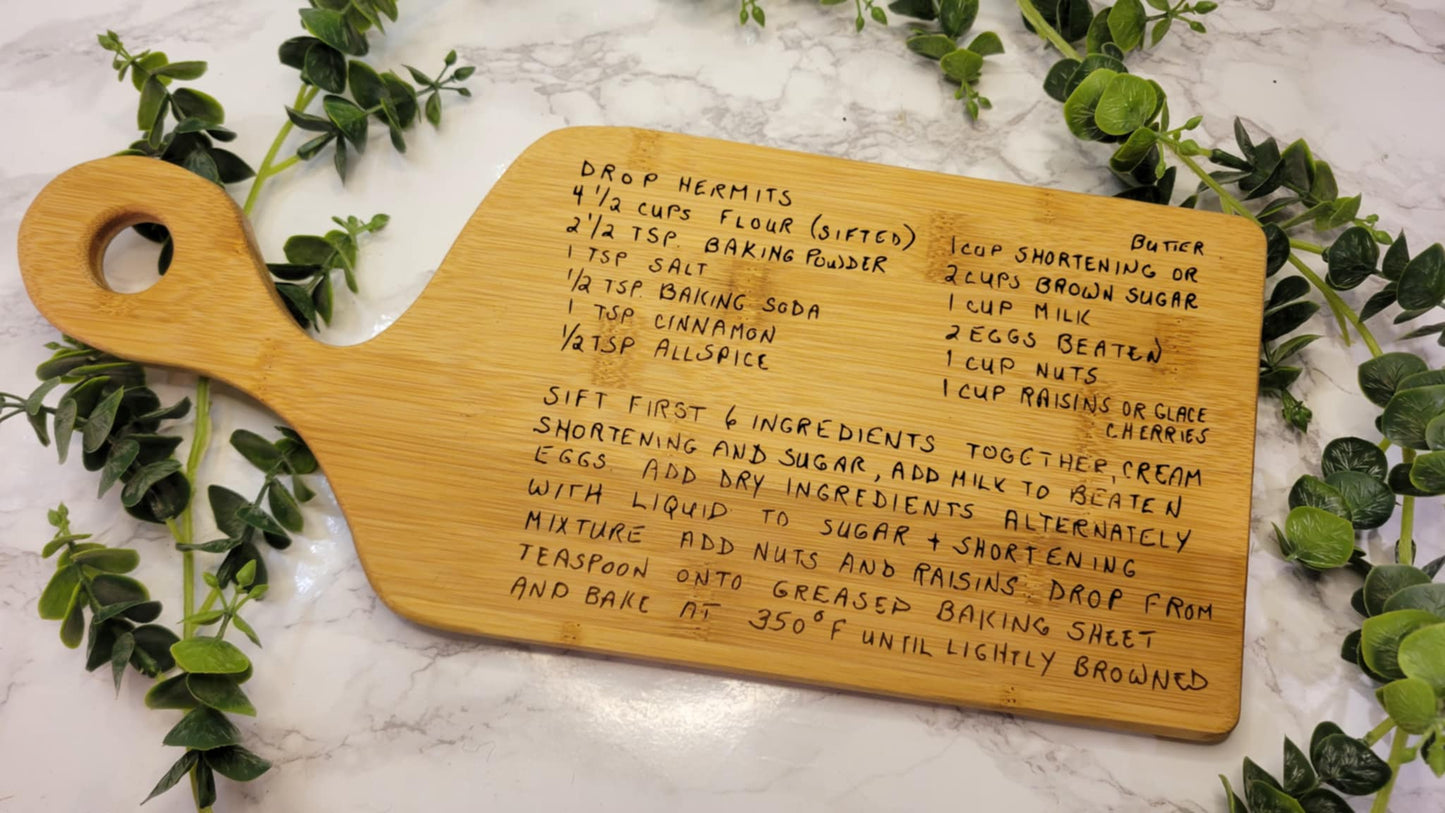 DROP HERMITS
4 1/2 CUPS FLOUR (SIFTED)
2 1/2 TSP. BAKING POWDER
1 TSP SALT
1/2 TSP. BAKING SODA
1 TSP CINNAMON
1/2 TSP ALLSPICE
BUTTER
1 CUP SHORTENING OR
2 CUPS BROWN SUGAR
1 CUP MILK
2 EGGS BEATEN
1 CUP NUTS
1 CUP RAISINS OR GLACE
CHERRIES
SIFT FIRST 6 INGREDIENTS TOGETHER, CREAM
SHORTENING AND SUGAR, ADD MILK TO BEATEN
EGGS. ADD DRY INGREDIENTS ALTERNATELY
WITH LIQUID TO SUGAR + SHORTENING
MIXTURE ADD NUTS AND RAISINS. DROP FROM
TEASPOON ONTO GREASED BAKING SHEET
AND BAKE AT 350°F UNTIL LIGHTLY BROWNED